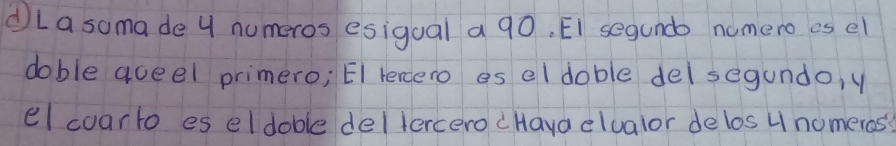 d) La suma de 4 numeros es igual a 90. El segundo numero es el
doble que el primero; El tercero es el doble del segundo, y
el cuarto es el doble del tercero ¿Haya el valor de los 4 numeros?